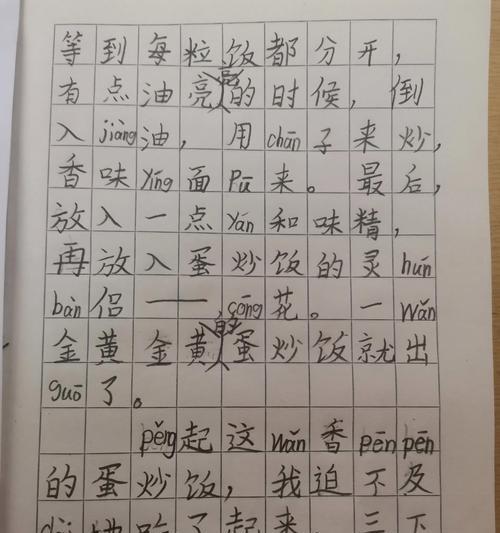 等到每粒饭都分开，
有点油亮亮的时候，倒
入jiàng油，用chǎn子来炒，
香味yíng面pū来。最后，
放入一点yán和味精，
再放入蛋炒饭的灵hún
bàn侣——，cōng花。一wǎn
金黄金黄的蛋炒饭就出
guō了。
pěng起这wǎn香pēnpēn
的蛋炒饭，我迫不及
起来，三下